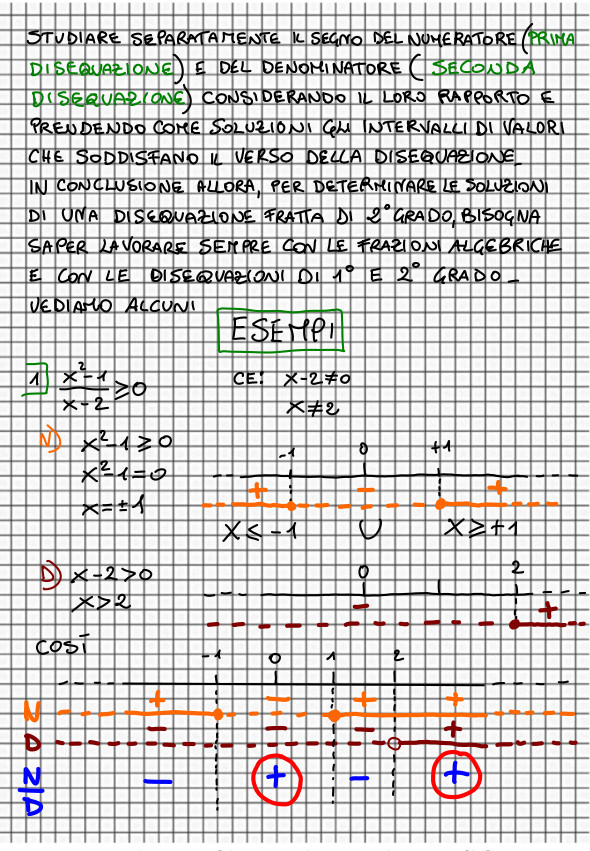 STUDIARE SEPARATAMENTE IL SEGNO DEL NUMERATORE (PRIMA
DISEQUAZIONE) E DEL DENOMINATORE ( SECONDA
DISEQUAZIONE) CONSIDERANDO IL LORO RAPPORTO E
PRENDENDO COME SOLUZIONI GLI INTERVALLI DI VALORI
CHE SODDISFANO IL VERSO DELLA DISEQUAZIONE_
IN CONCLUSIONE ALLORA, PER DETERMINARE LE SOLUZIONI
DI UNA DISEQUAZIONE FRATTA DI 2° GRADO, BISOGNA
SAPER LAVORARE SEMPRE CON LE FRAZIONI ALGEBRICHE
E CON LE DISEQUAZIONI DI 1° E 2° GRADO_
VEDIAMO ALCUNI
ESEMPI
1 x²-1/x-2 ⩾0 CE: x-2≠0
x≠2
N) x²-1 ⩾0
x²-1=0
x=±1
-1 0 +1
+ - +
x⩽-1 U x⩾+1
D) x-2>0
x>2
0 2
- +
COSÌ
-1 0 1 2
N + - + +
D - - - +
N/D - + - +